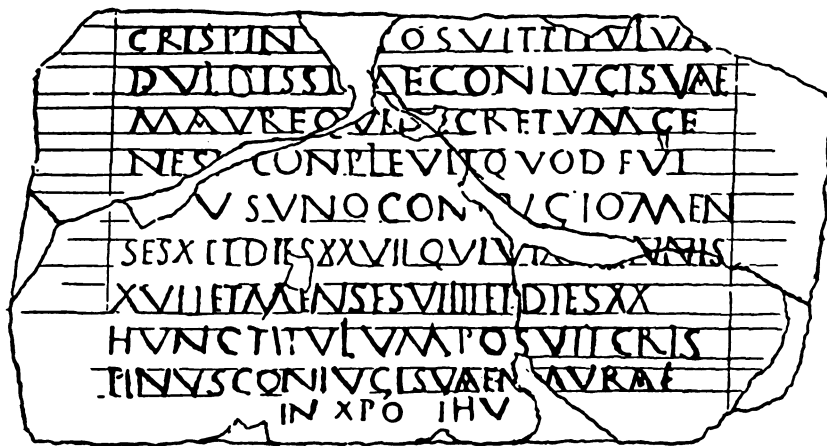 CRISPIN OSVITTITVLVM
DVLCISSI AECONIVGISVAE
MAVRE CRETVMGE
NES CONPLEVITQVODFVI
VSVNOCON VGIOMEN
SESXIIDIESXXVII QVIVI VNIS
XVIIETMENSESVIIIIETDIESXX
HVNCTITVLVMPOSVITCRIS
PINVSCONIVGISVAEM AVRAE
IN XPO IHV